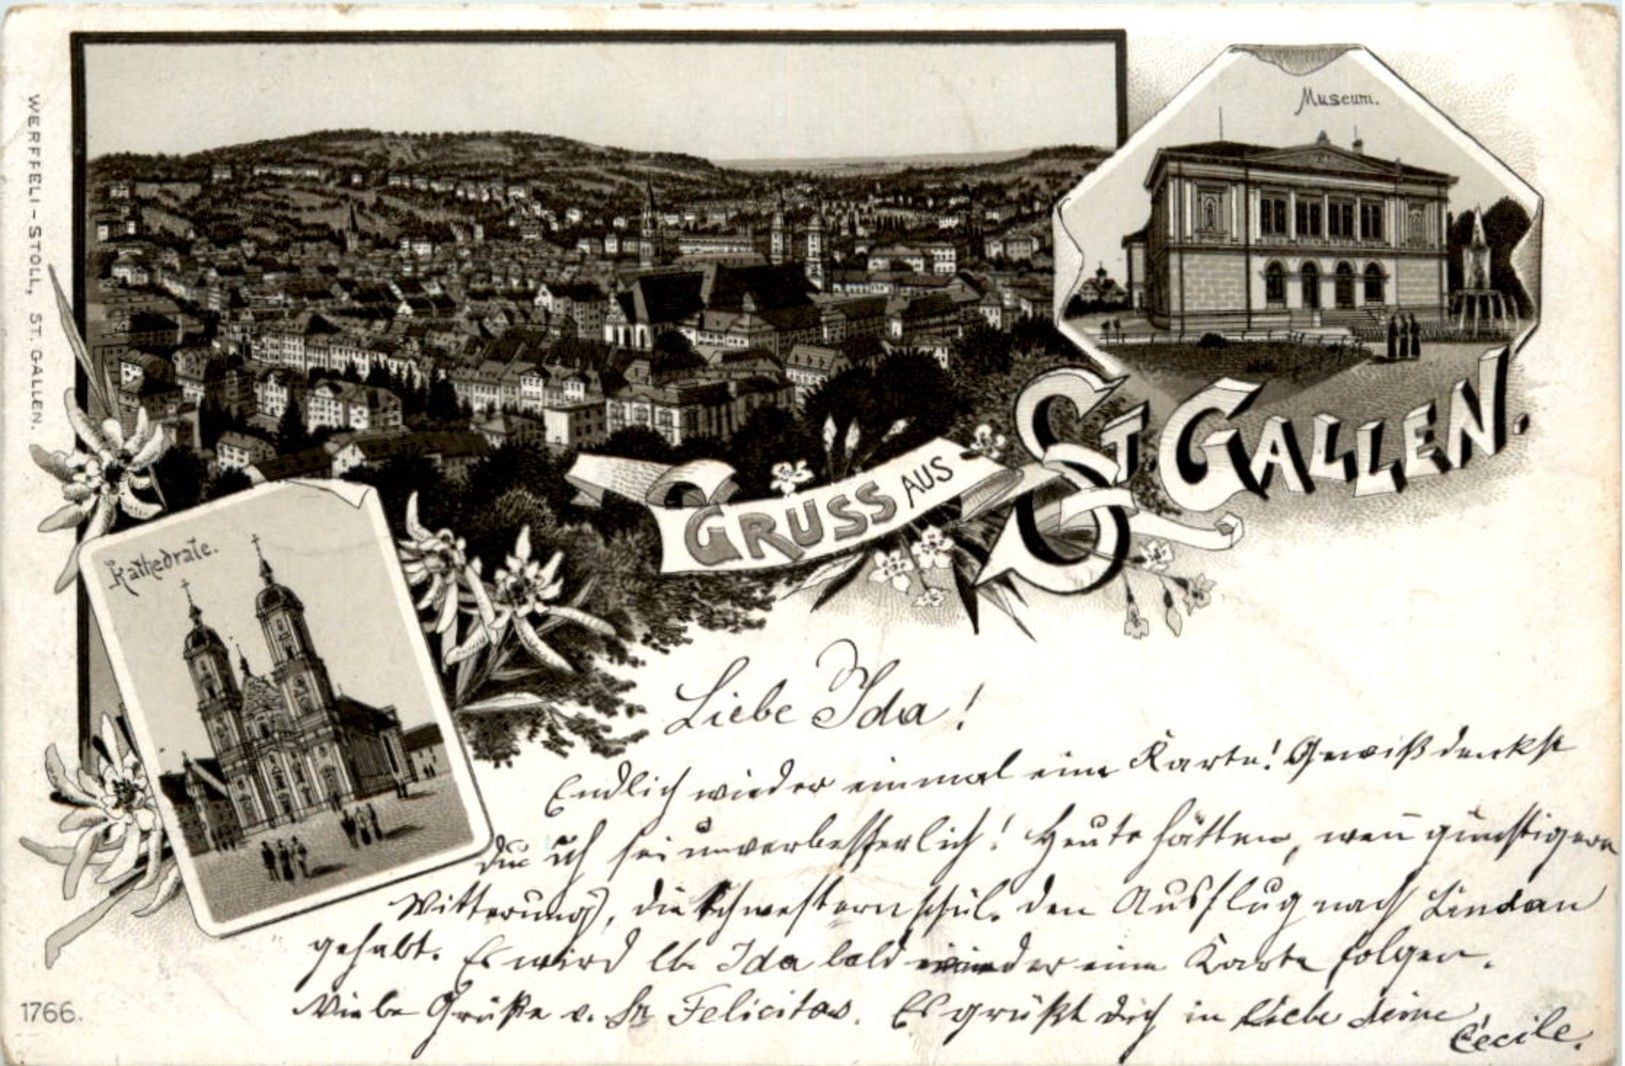 WERFFELI-STOLL, ST. GALLEN.
Museum.
GRUSS AUS ST. GALLEN.
Kathedrale.
Liebe Ida!
Endlich wieder einmal eine Karte! Gewiß denkst
Du ich sei unverbesserlich! Heute hätten, wen̄ günstigere
Witterung, die Schwesternschül. den Ausflug nach Lindau
gehabt. Es wird lb. Ida bald wieder eine Karte folgen.
Viele Grüße v. Sr Felicitas. Es grüßt dich in Liebe deine
Cécile.
1766.